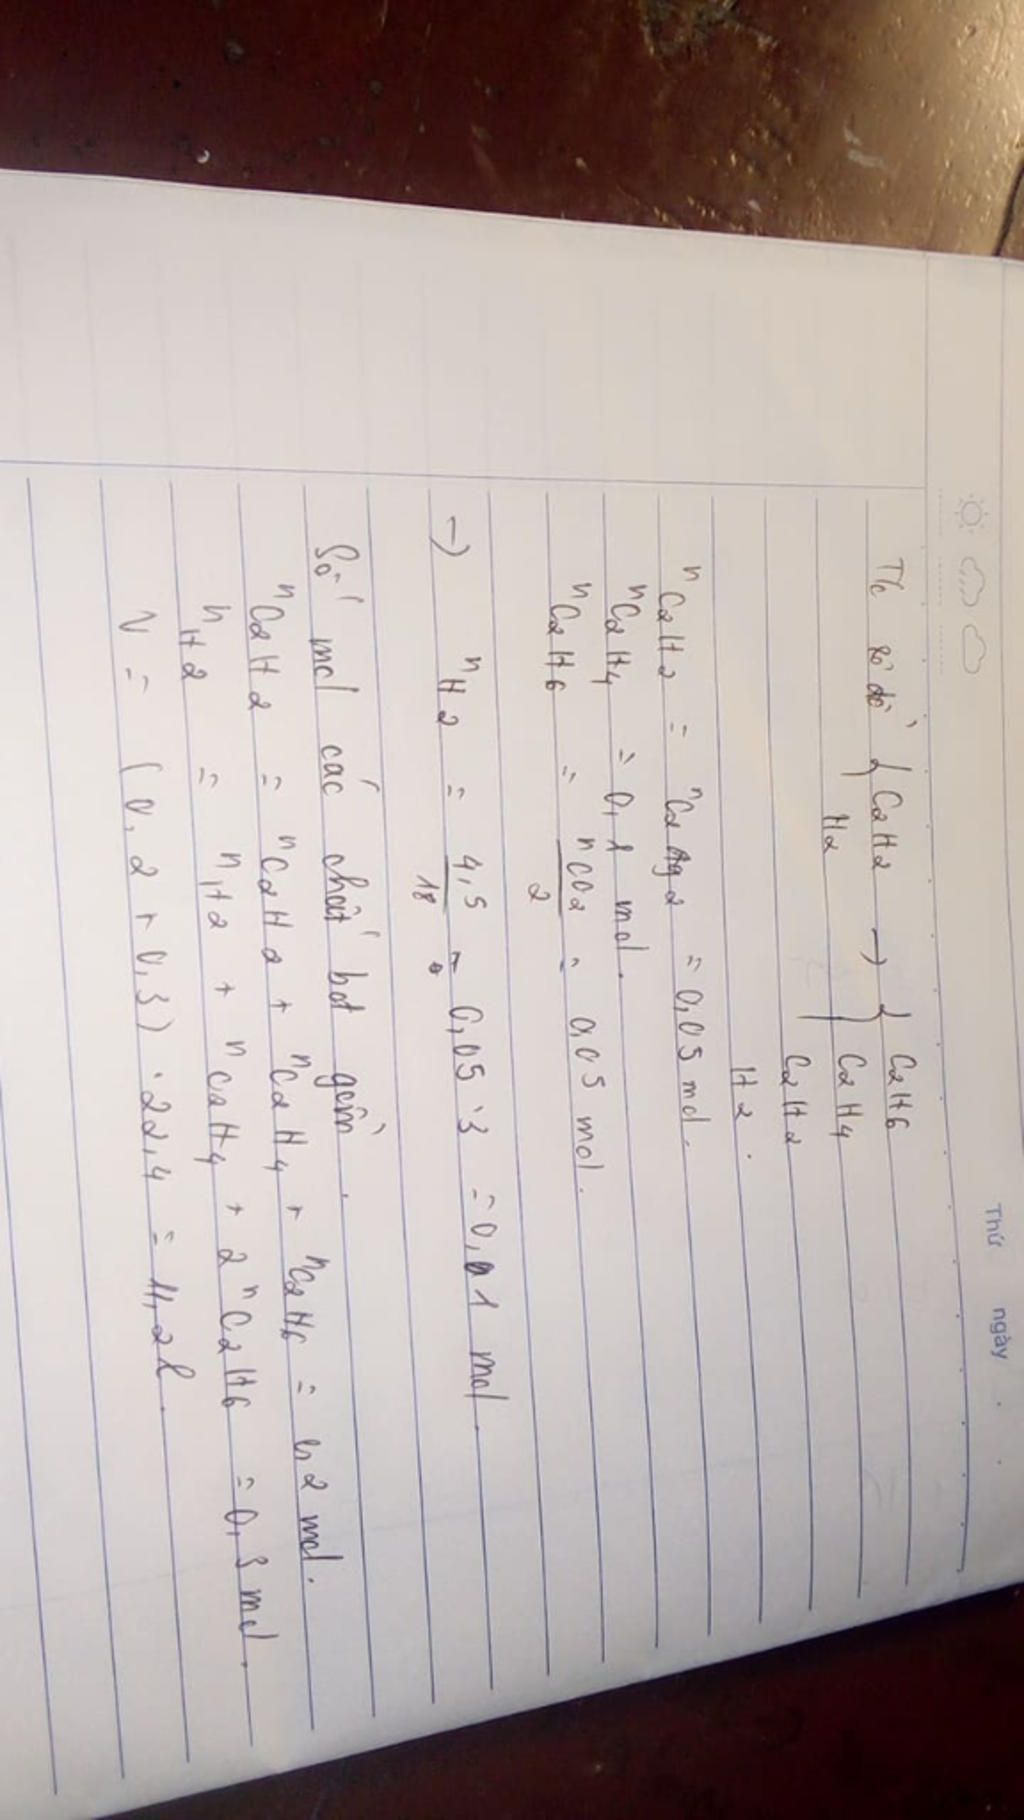 Thứ ngày
Từ sơ đồ { C2H2 → { C2H6
H2 } C2H4
C2H2
H2.
nC2H2 = nC2Ag2 = 0,05 mol.
nC2H4 = 0,1 mol.
nC2H6 = nCO2/2 = 0,05 mol.
→ nH2 = 4,5/18 - 0,05.3 = 0,1 mol.
Số mol các chất bđ gồm.
nC2H2 = nC2H2 + nC2H4 + nC2H6 = 0,2 mol.
nH2 = nH2 + nC2H4 + 2nC2H6 = 0,3 mol.
V = (0,2 + 0,3) . 22,4 = 11,2 l.